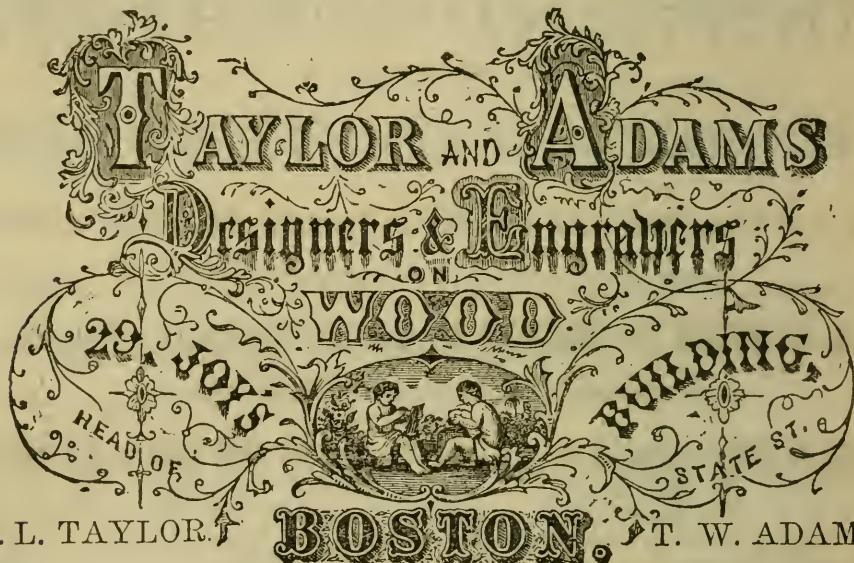 TAYLOR AND ADAMS
Designers & Engravers
ON
WOOD
29, JOY'S BUILDING,
HEAD OF STATE ST.
. L. TAYLOR. BOSTON. T. W. ADAM